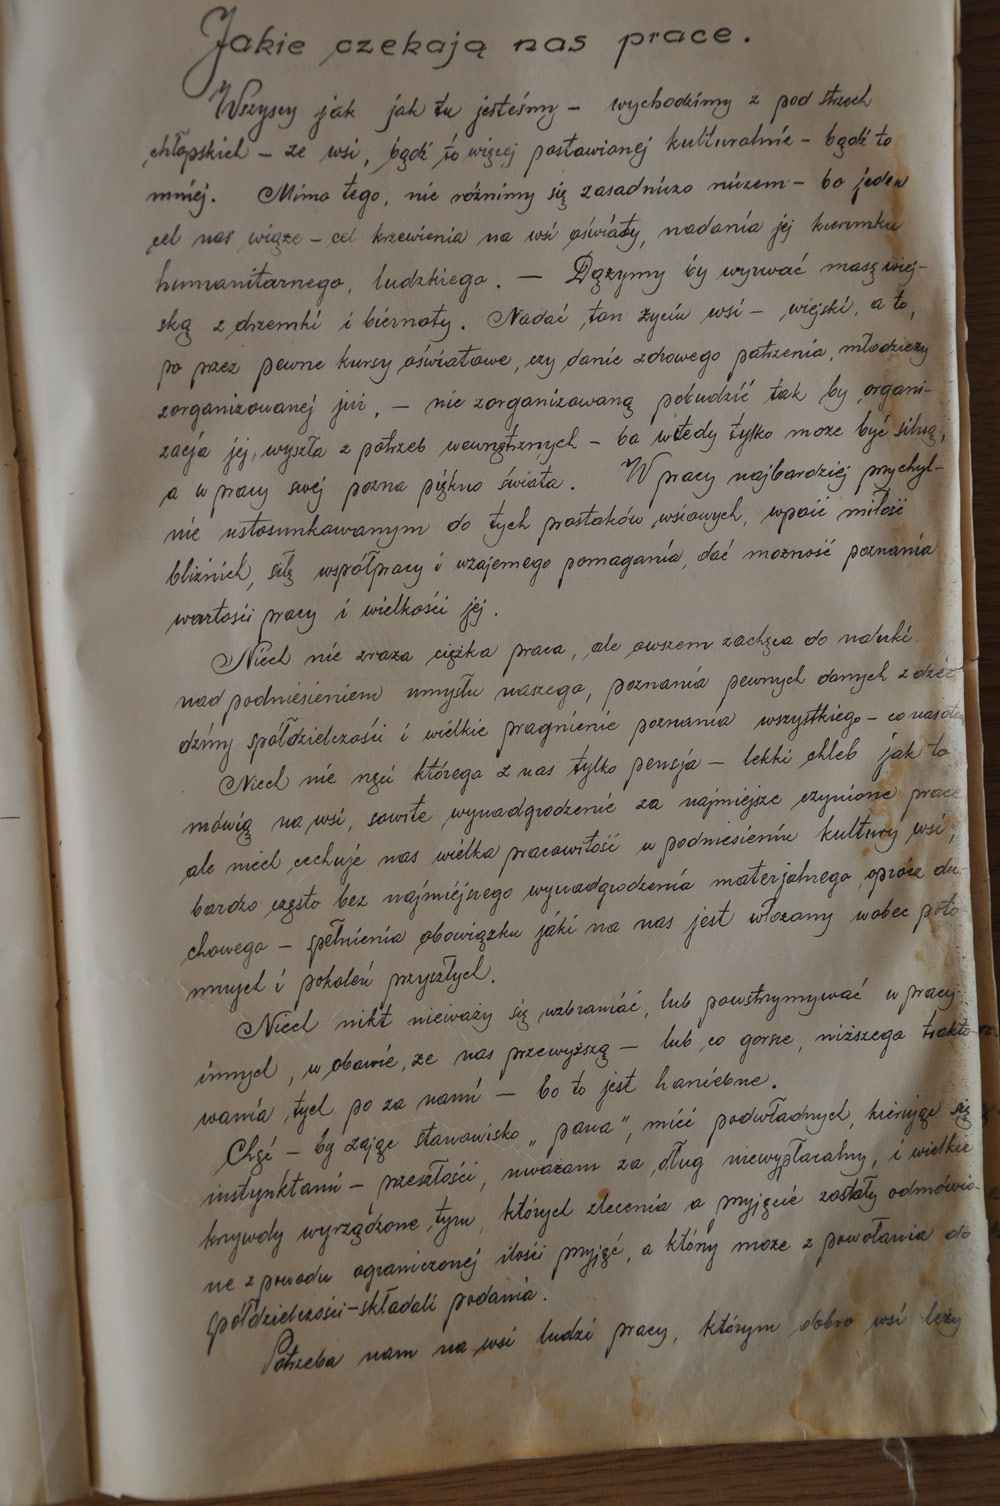 Jakie czekają nas prace.
Wszyscy jak jak tu jesteśmy - wychodzimy z pod strzech
chłopskich - ze wsi, bądź to więcej postawionej kulturalnie - bądź to
mniej. Mimo tego, nie różnimy się zasadniczo niczem - bo jeden
cel nas wiąże - cel krzewienia na wsi oświaty, nadania jej kierunku
humanitarnego, ludzkiego. - Dążymy by wyrwać masę wiej-
ską z drzemki i biernoty. Nadać ton życiu wsi - wiejski, a to,
po przez pewne kursy oświatowe, czy danie zdrowego patrzenia, młodzieży
zorganizowanej już, - nie zorganizowaną pobudzić tak by organi-
zacja jej, wyszła z potrzeb wewnętrznych - bo wtedy tylko może być silną,
a w pracy swej pozna piękno świata. W pracy najbardziej przychyl-
nie ustosunkowanym do tych prostaków wsiowych, wpoić miłość
bliźnich, siłę współpracy i wzajemego pomagania, dać możność poznania
wartości pracy i wielkości jej.
Niech nie zraża ciężka praca, ale owszem zachęca do nauki
nad podniesieniem umysłu naszego, poznania pewnych danych z dzie
dziny spółdzielczości i wielkie pragnienie poznania wszystkiego - co nas
Niech nie nęci którego z nas tylko pensja - lekki chleb jak to
mówią na wsi, sowite wynadgrodzenie za najmiejsze czynione prace
ale niech cechuje nas wielka pracowitość w podniesieniu kultury wsi,
bardzo często bez najmiejsego wynadgrodzenia materjalnego, oprócz du-
chowego - spełnienia obowiązku jaki na nas jest włożany wobec poto-
mnych i pokoleń przyszłych.
Niech nikt nieważy się wzbraniać, lub powstrzymywać w pracy
innych, w obawie, że nas przewyższą - lub co gorsze, niższego trakto-
wania tych po za nami - bo to jest haniebne.
Chęć - by zając stanowisko „pana”, mieć podwładnych, kierując się
instynktami - przeszłości, uważam za dług niewypłacalny, i wielkie
krzywdy wyrządzone tym, których zlecenia a przyjęcie zostały odmówio-
ne z powodu ograniczonej ilości przyjęć, a który może z powołania do
spółdzielczości - składali podania.
Potrzeba nam na wsi ludzi pracy, którym dobro wsi leży